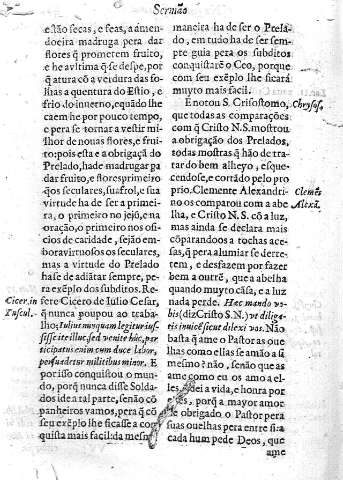 Sermão
estão secas, e feas, a amen-
doeira madruga pera dar
flores q̃ prometem fruito,
e he a vltima q̃ se despe, por
q̃ atura cõ a verdura das fo-
lhas a quentura do Estio, e
frio do inuerno, e quãdo lhe
caem he por pouco tempo,
e pera se tornar a vestir mi-
lhor de nouas flores, e frui-
to: pois esta e a obrigaçã do
Prelado, ha de madrugar pa
dar fruito, e flores primeiro
q̃ os seculares, sua frol, e sua
virtude ha de ser a primei-
ra, o primeiro no jejũ, e na
oração, o primeiro nos ofi-
cios de caridade, sejão em-
bora virtuosos os seculares,
mas a virtude do Prelado
hase de adiãtar sempre, pe-
ra exẽplo dos subditos. Re-
fere Cicero de Iulio Cesar,
q̃ nunca poupou ao traba-
lho; Iulius nunquam legitur ius-
sisse ite illuc, sed venite hùc, par-
ticipatus enim cum duce labor,
persuadetur militibus minor. E
por isso conquistou o mun-
do, porq̃ nunca disse Solda-
dos ide a tal parte, senão cõ
panheiros vamos, pera q̃ cõ
seu exẽplo lhe ficasse a con-
quista mais facil: da mesma
Cicer. in
Tuscul.
maneira ha de ser o Prela-
do, em tudo ha de ser sem-
pre guia pera os subditos
conquistarẽ o Ceo, porque
com seu exẽplo lhe ficará
muyto mais facil.
E notou S. Crisostomo,
que todas as comparações
com q̃ Cristo N. S. mostrou
a obrigação dos Prelados,
todas mostras q̃ hão de tra-
tar do bem alheyo, esque-
cendose, e cortãdo pelo pro
prio. Clemente Alexandri-
no os comparou com a abe
lha, e Cristo N. S. cõ a luz,
mas ainda se declara mais
cõparandoos a tochas ace-
sas, q̃ pera alumiar se derre-
tem, e desfazem por fazer
bem a outrẽ, que a abelha
quando muyto cãsa, e a luz
nada perde. Hæc mando vo-
bis (diz Cristo N. S.) vt dilig-
atis inuicẽ sicut dilexi vos. Não
basta q̃ ame o Pastor as oue
lhas como ellas se amão a si
mesmo? não, senão que as
ame como eu os amo a el-
les, dei a vida, e honra por
porq̃ a mayor amor
he obrigado o Pastor pera
suas ouelhas pera entre si a
cada hum pede Deos, que
ame
Chrysos.
Clemẽs
Alexã.